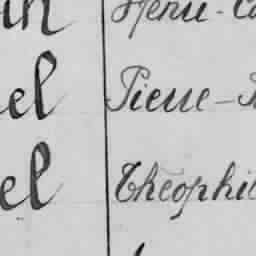 in Henri - Ca
el Pierre - 
el Théophil